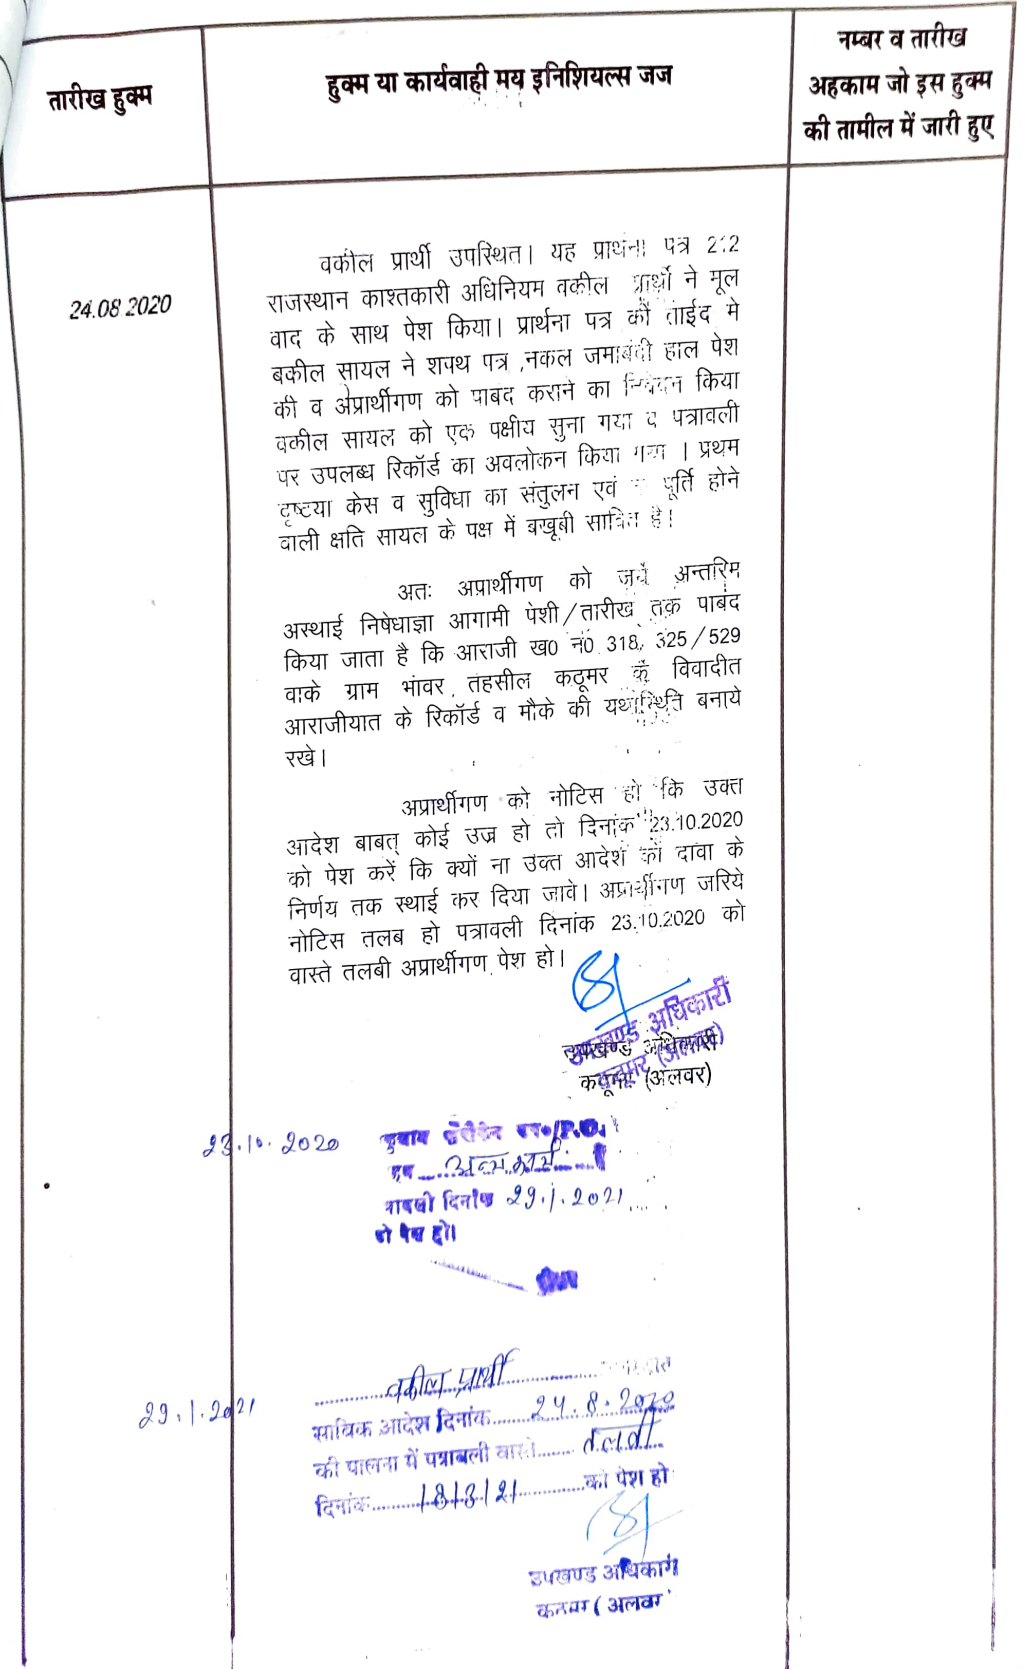 तारीख हुक्म
हुक्म या कार्यवाही मय इनिशियल्स जज
नम्बर व तारीख
अहकाम जो इस हुक्म
की तामील में जारी हुए
24.08.2020
वकील प्रार्थी उपस्थित। यह प्रार्थना पत्र 212
राजस्थान काश्तकारी अधिनियम वकील प्रार्थी ने मूल
वाद के साथ पेश किया। प्रार्थना पत्र की ताईद मे
बकील सायल ने शपथ पत्र ,नकल जमाबंदी हाल पेश
की व अप्रार्थीगण को पाबंद कराने का निवेदन किया
वकील सायल को एक पक्षीय सुना गया व पत्रावली
पर उपलब्ध रिकॉर्ड का अवलोकन किया गया । प्रथम
दृष्टया केस व सुविधा का संतुलन एवं पूर्ति होने
वाली क्षति सायल के पक्ष में बखूबी साबित है।
अतः अप्रार्थीगण को जर्ये अन्तरिम
अस्थाई निषेधाज्ञा आगामी पेशी/तारीख तक पाबंद
किया जाता है कि आराजी ख0 नं0 318, 325/529
वाके ग्राम भांवर तहसील कठूमर के विवादीत
आराजीयात के रिकॉर्ड व मौके की यथास्थिति बनाये
रखे।
अप्रार्थीगण को नोटिस हो कि उक्त
आदेश बाबत् कोई उज्र हो तो दिनांक 23.10.2020
को पेश करें कि क्यों ना उक्त आदेश को दावा के
निर्णय तक स्थाई कर दिया जावे। अप्रार्थीगण जरिये
नोटिस तलब हो पत्रावली दिनांक 23.10.2020 को
वास्ते तलबी अप्रार्थीगण पेश हो।
उपखण्ड अधिकारी
कठूमर (अलवर)
उपखण्ड अधिकारी
कठूमर (अलवर)
23.10.2020
P.O.
अन्य कार्य
दिनांक 29.1.2021
को पेश हो।
29.1.2021
वकील प्रार्थी
साबिक आदेश दिनांक 24.8.2020
की पालना में पत्रावली वास्ते तलबी
दिनांक 18/3/21 को पेश हो
उपखण्ड अधिकारी
कठूमर (अलवर